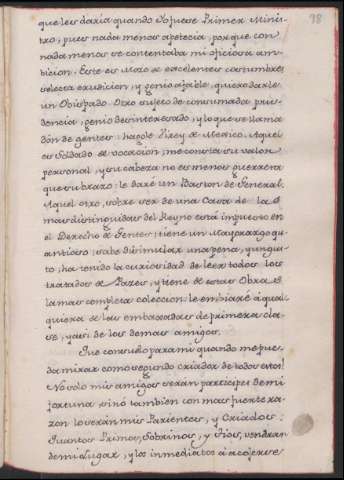 98
que les daria quando Yo fuese Primer Minis-
tro, pues nada menos apetecia, porque con
nada menos se contentaba mi oficiosa am-
bicion. Este es Mozo de excelentes costumbres,
selecta erudicion, y genio afable, quiero darle
un Obispado. Otro sujeto de consumada pru-
dencia, genio desinteresado, y lo que se llama
dòn de gentes: hagole Virey de Mexico. Aquel
es Soldado de vocacion, me consta su valor
personal, y su cabeza no es menos guerrera
que su brazo: le daré un Baston de General.
Aquel otro, sobre ser de una Casa de las
mas distinguidas del Reyno està impuesto en
el Derecho de Gentes; tiene un Mayorazgo qu-
antioso; sabe disimular una pena, y un gus-
to; ha tenido la curiosidad de leer todos los
tratados de Pazes, y tiene de estas Obras
la mas completa coleccion: le embiaré a qual-
quiera de las embaxadas de primera cla-
se, y asi de los demas amigos.
Que consuelo para mi quando me pue-
da mirar como segundo criador de todos estos!
No solo mis amigos seràn participes de mi
fortuna, sinò tambien con mas fuerte ra-
zon lo seràn mis Parientes, y Criados:
Quantos Primos, Sobrinos, y Tios, vendràn
de mi Lugar, y los inmediatos à acojerse